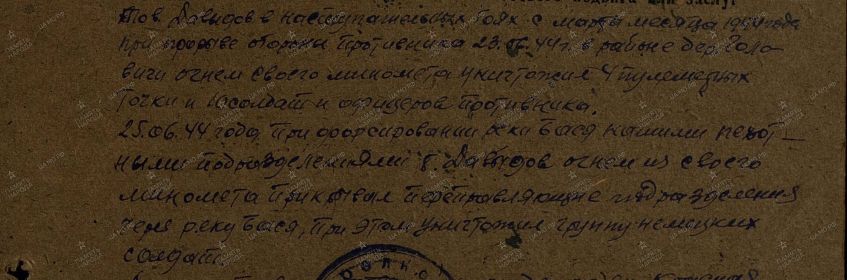 Тов. Давыдов в наступательных боях с марта месяца 1944 года
при прорыве обороны противника 23.06.44 г. в районе дер. Голо-
вичи огнем своего миномета уничтожил 4 пулеметных
точки и солдат и офицеров противника.
25.06.44 года при форсировании реки Бася нашими пехот-
ными подразделениями т. Давыдов огнем из своего
миномета прикрывал переправляющие подразделения
через реку Бася, при этом уничтожил группу немецких
солдат.